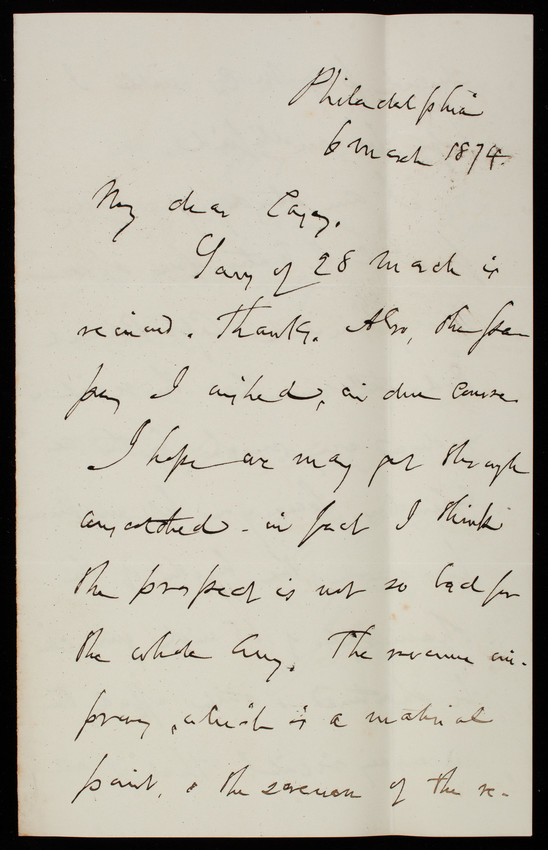 Philadelphia
6 March 1874.
My dear Casey,
Yours of 28 March is
received. Thanks. Also, the pa-
pers I wished, in due course
I hope we may get through
unscathed - in fact I think
the prospect is not so bad for
the whole Army. The revenue im-
proves, which is a material
point, & the of the re-